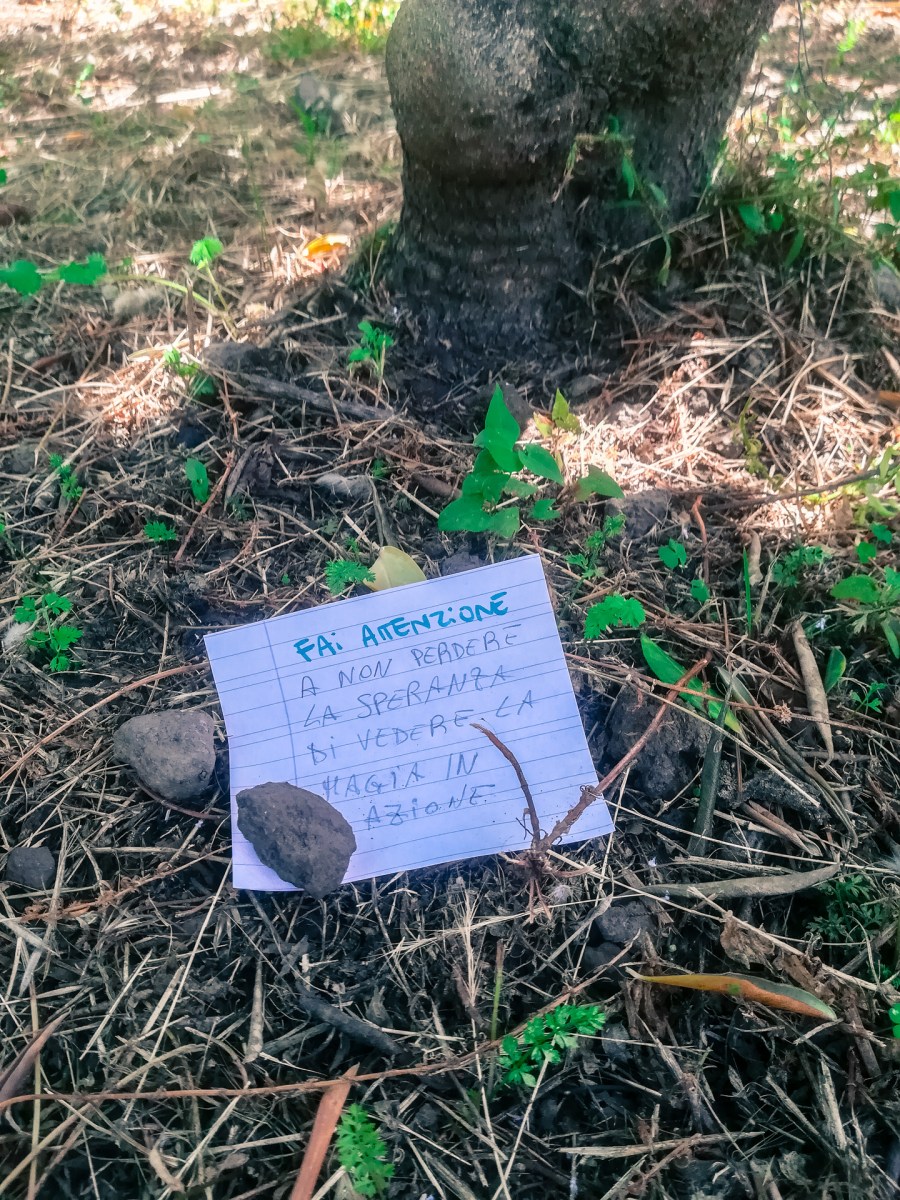 FAi ATTENZIONE
A NON PERDERE
LA SPERANZA
Di VEDERE LA
MAGiA IN
AZiONE